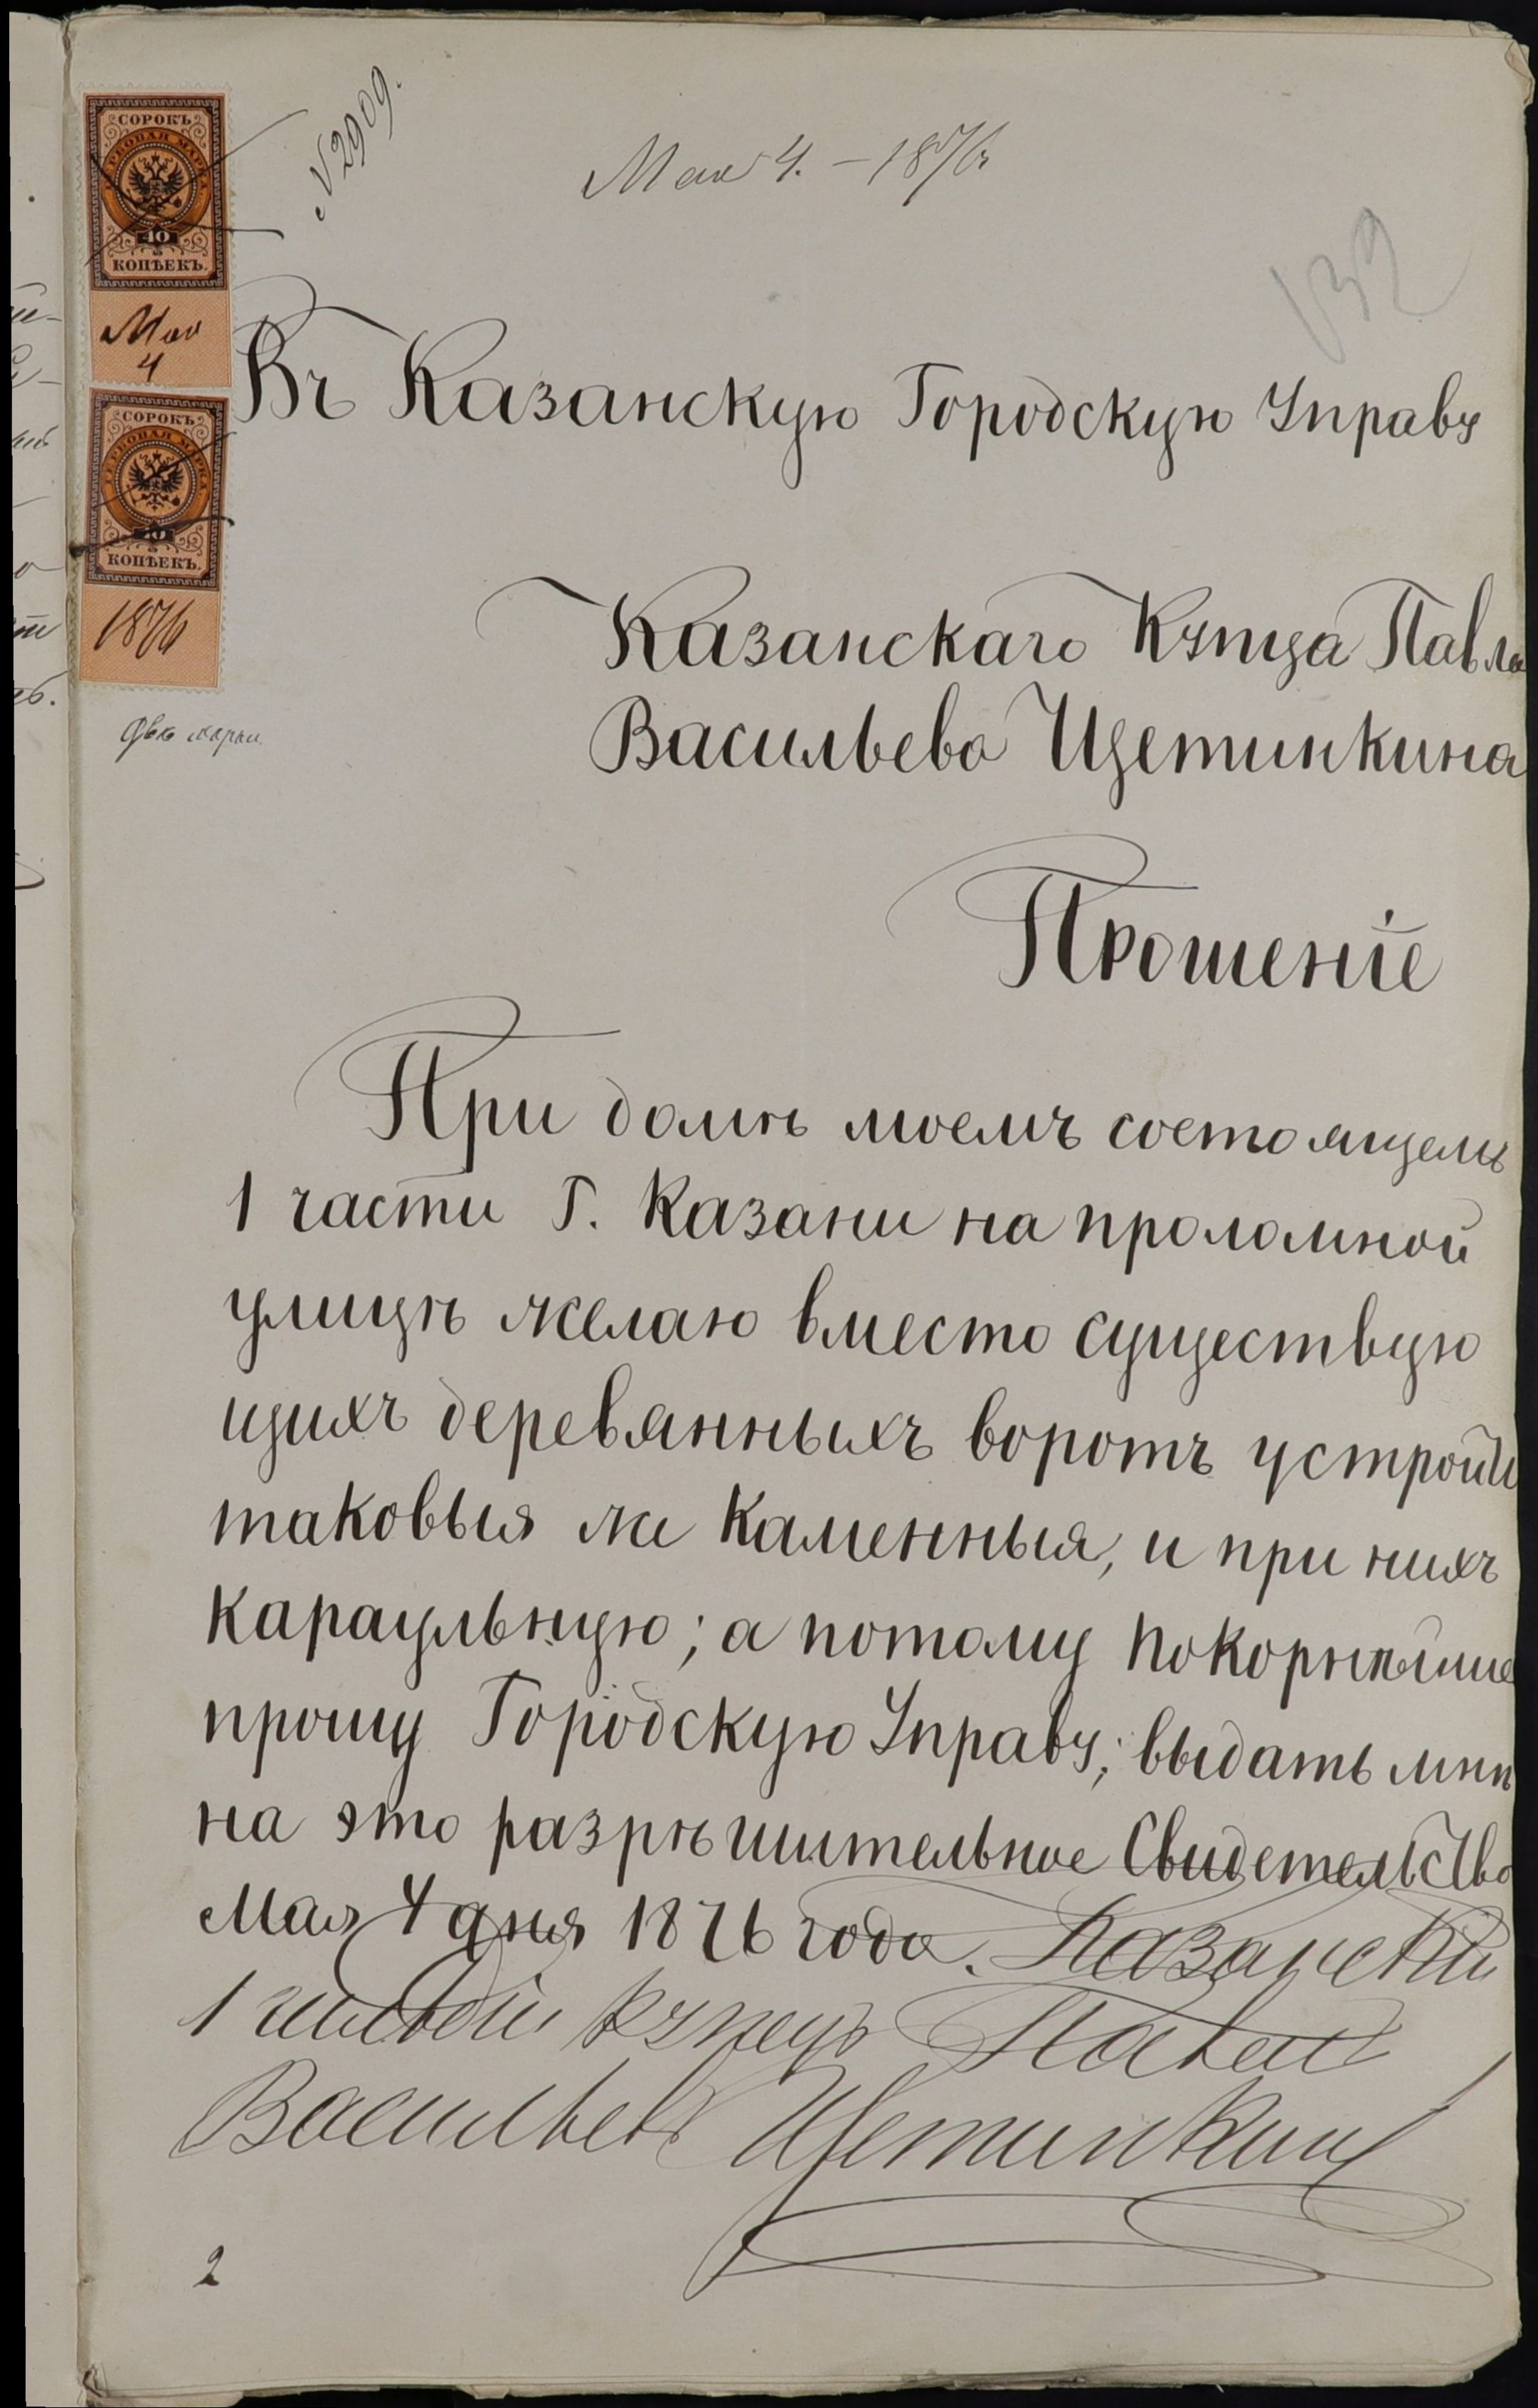 СОРОКЪ
ГЕРБОВАЯ МАРКА
40
КОПѢЕКЪ.
Мая
4
СОРОКЪ
ГЕРБОВАЯ МАРКА
40
КОПѢЕКЪ.
1876
Двѣ марки
№2909.
Мая 4. – 1876
132
Въ Казанскую Городскую Управу
Казанскаго Купца Павла
Васильева Щетинкина
Прошеніе
При домѣ моемъ состоящемъ
1 части Г. Казани на проломной
улицѣ желаю вместо существую
щихъ деревянныхъ воротъ устроить
таковыя же Каменныя, и при нихъ
Караульную; а потому покорнѣйше
прошу Городскую Управу, выдать мнѣ
на это разрѣшительное Свидетельство
Мая 4 дня 1876 года. Казански
1 гильдіи купецъ Павелъ
Васильевъ Щетинкинъ
2